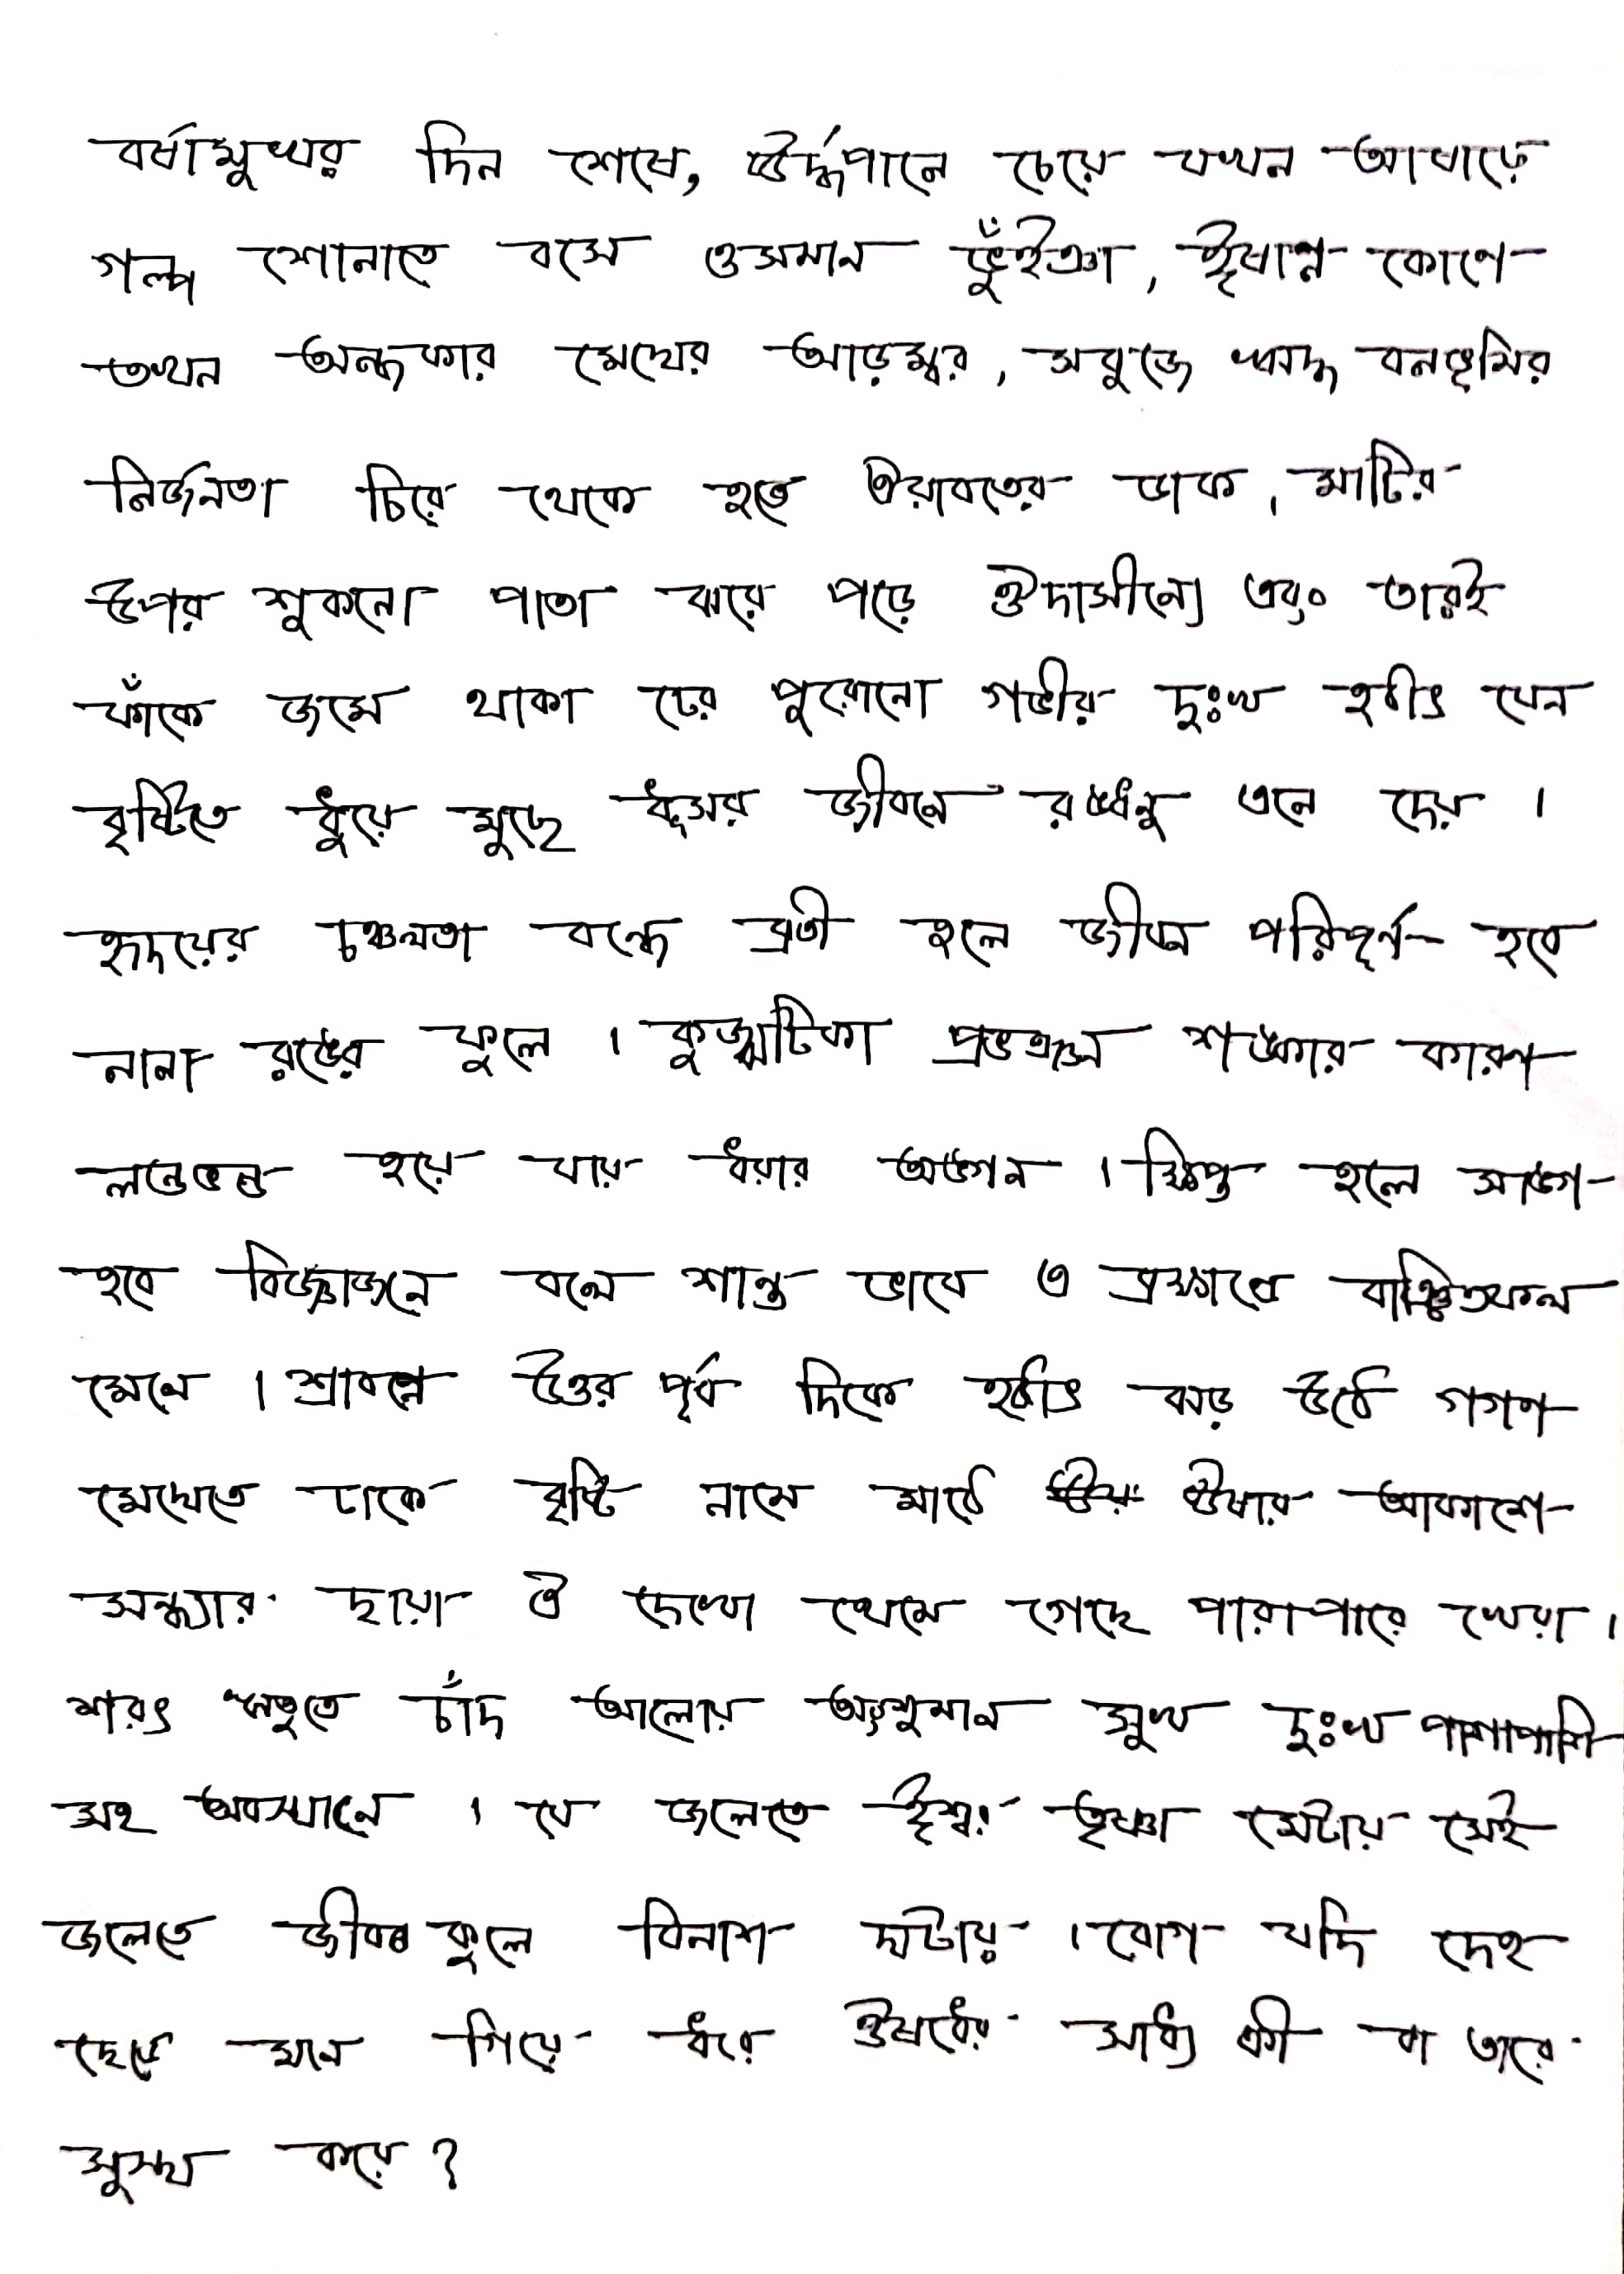 বর্ষামুখর দিন শেষে, ঊর্দ্ধপানে চেয়ে যখন আষাঢ়ে
গল্প শোনাতে বসে ওসমান ভুঁইঞা, ঈষান কোণে
তখন অন্ধকার মেঘের আড়ম্বর, সবুজে ঋদ্ধ বনভূমির
নির্জনতা চিরে থেকে থেকে ঐরাবতের ডাক, মাটির
উপর শুকনো পাতা ঝরে পড়ে ঔদাসীন্যে এবং তারই
ফাঁকে জমে থাকা ঢের পুরোনো গভীর দুঃখ হঠাৎ যেন
বৃষ্টিতে ধুয়ে মুছে ধূসর জীবনে রঙধনু এনে দেয় ।
হৃদয়ের চঞ্চলতা বন্ধে ব্রতী হলে জীবন পরিপূর্ন হবে
নানা রঙের ফুলে । কুজ্ঝটিকা প্রভঞ্জন শঙ্কার কারণ
লন্ডভন্ড হয়ে যায় ধরার অঙ্গন । ক্ষিপ্ত হলে সাঙ্গ
হবে বিজ্ঞজনে বলে শান্ত ভাবে এ ব্রহ্মাণ্ডে বাঞ্ছিতফল
মেলে । শ্রাবণে উত্তর পূর্ব দিকে হঠাৎ ঝড় উঠে গগণ
মেঘেতে ঢাকে বৃষ্টি নামে মাঠে ঊষার আকাশে
সন্ধ্যার ছায়া ঐ দেখো থেমে গেছে পারাপারে খেয়া ।
শরৎ ঋতুতে চাঁদ আলোয় অংশুমান সুখ দুঃখ পাশাপাশি
সহ অবস্থানে । যে জলেতে ঈশ্বর তৃষ্ণা মেটায় সেই
জলেতে জীবকুলে বিনাশ ঘটায় । রোগ যদি দেহ
ছেড়ে মনে গিয়ে ধরে ঔষধের সাধ্য কী বা তারে
সুস্থ করে ?